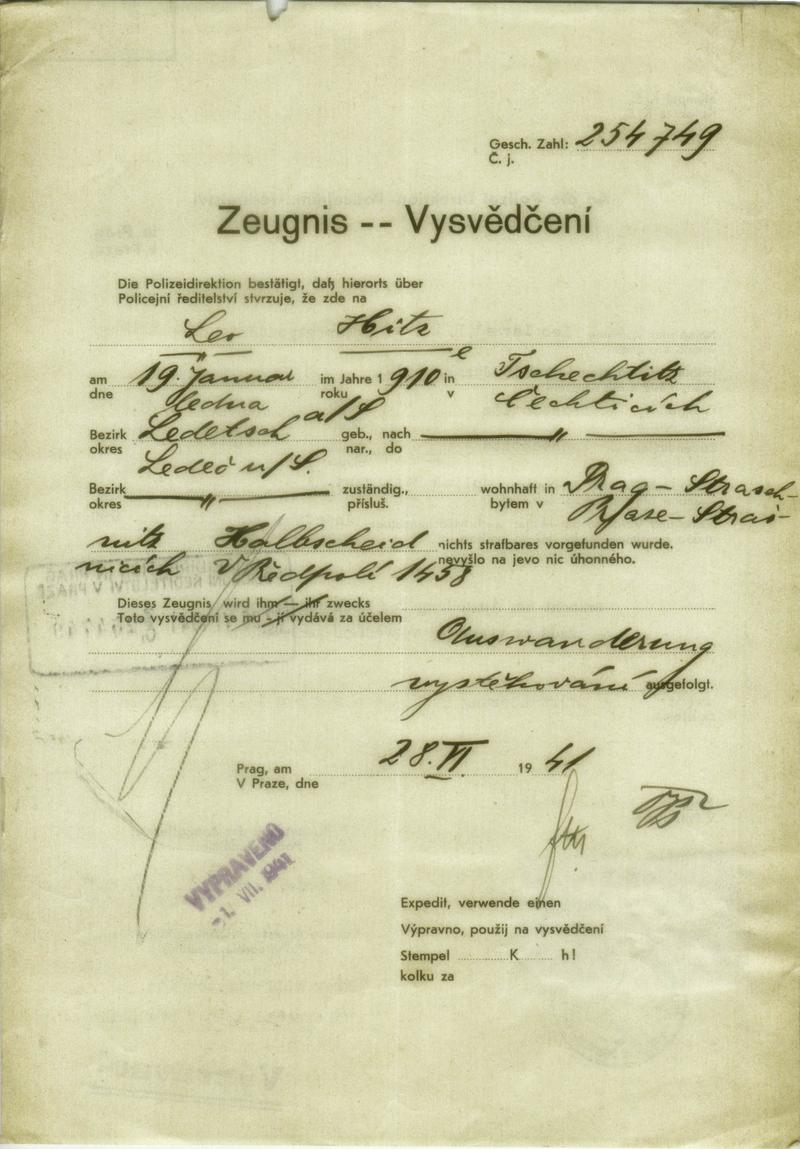 Gesch. Zahl: 254749
Č. j.
Zeugnis -- Vysvědčení
Die Polizeidirektion bestätigt, daß hierorts über
Policejní ředitelství stvrzuje, že zde na
Leo Hitz
e
am 19. Januar im Jahre 1910 in Tschechtitz
dne ledna roku v Čechticích
Bezirk Ledetsch a/S geb., nach "
okres Ledeč n/S. nar., do
Bezirk " zuständig., wohnhaft in Prag - Strasch-
okres přísluš. bytem v Praze - Straš-
nitz Halbscheid nichts strafbares vorgefunden wurde.
nicích V Předpolí 1458 nevyšlo na jevo nic úhonného.
Dieses Zeugnis wird ihm — ihr zwecks
Toto vysvědčení se mu - jí vydává za účelem
Auswanderung
vystěhování ausgefolgt.
Prag, am 28. VI 1941
V Praze, dne
VYPRAVENO
-1. VII. 1941
Expedit, verwende einen
Výpravno, použij na vysvědčení
Stempel K h!
kolku za